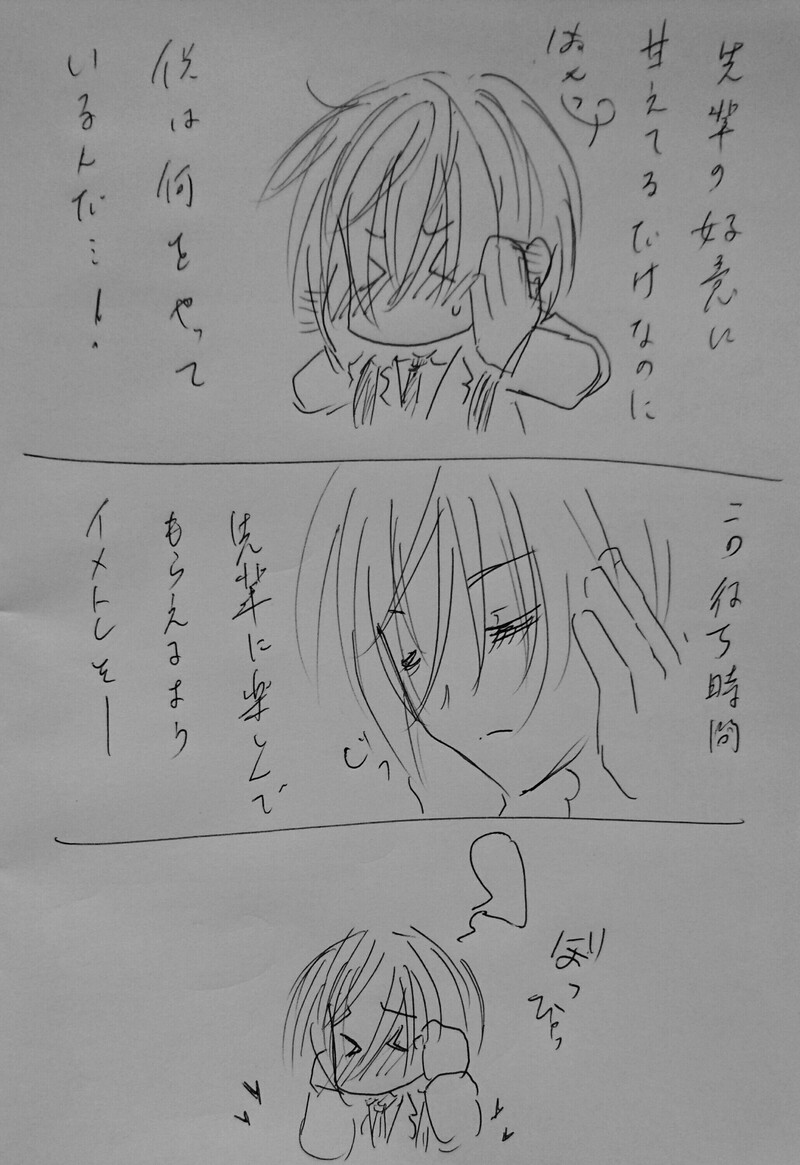 先輩の好意に
甘えてるだけなのに
はぁっ
僕は何をやって
いるんだ…!
この待ち時間
先輩に楽しんで
もらえるより
イメトレを―
じっ
ぼっ